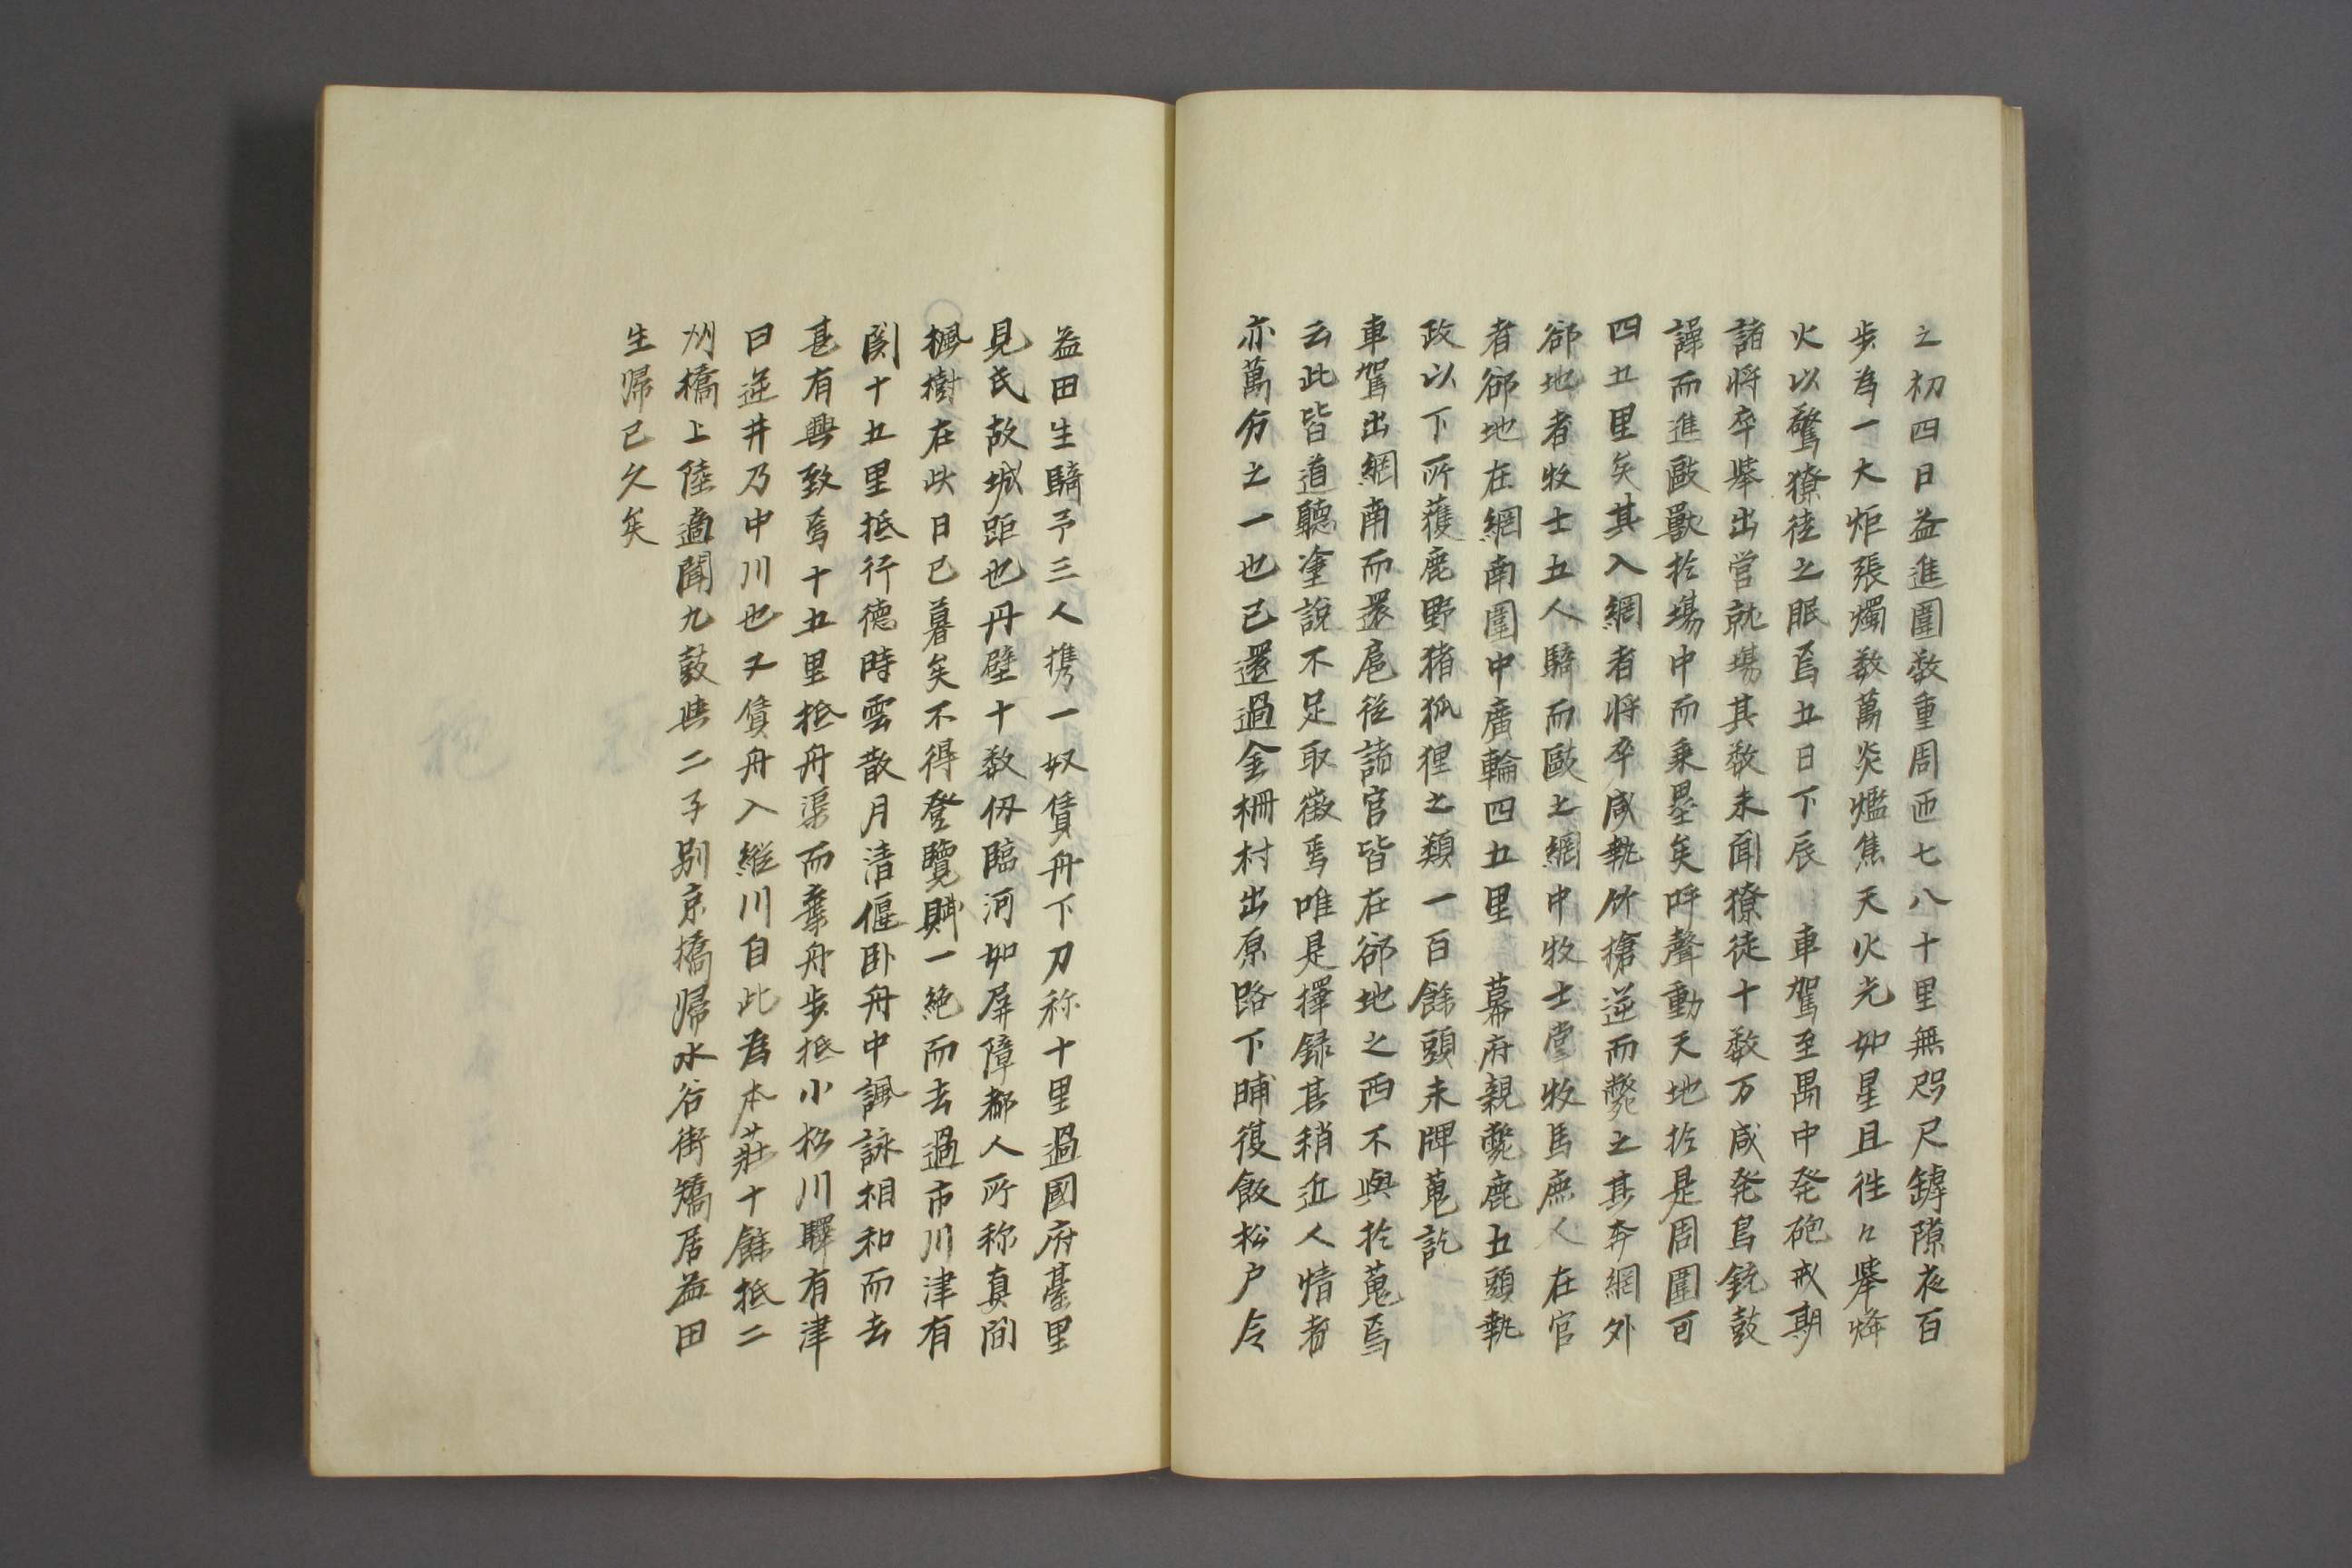 之初四日益進圍数重周匝七八十里無咫尺罅隙夜百
歩為一大炬張燭数萬炎爁焦天火光如星且往々挙烽
火以驚獠徒之眠焉五日下辰　車駕至禺中発砲戒期
諸将卒挙出営就場其数未聞獠徒十数万咸発鳥銃鼓
譟而進敺獣於場中而乗塁矣呼聲動天地於是周圍可
四五里矣其入網者将卒咸執竹槍逆而斃之其奔網外
郤地者牧士五人騎而敺之網中牧士掌牧馬庶人在官
者郤地在網南圍中廣輪四五里　幕府親斃鹿五頭執
政以下所獲鹿野猪狐狸之類一百餘頭未牌蒐訖
車駕出網南而還扈従諸官皆在郤地之西不與於蒐焉
云此皆道聽塗說不足取徴焉唯是擇録其稍近人情者
亦萬分之一也已還過金柵村出原路下晡復飯松戸令
益田生騎予三人携一奴賃舟下刀称十里過國府墓里
見氏故城距也丹壁十数仭臨河如屏障都人所称真間
楓樹在此日已暮矣不得登覽賦一絶而去過市川津有
関十五里抵行徳時雲散月清偃卧舟中諷詠相和而去
甚有興致焉十五里抵舟渠而棄舟歩抵小松川驛有津
曰逆井乃中川也又賃舟入縦川自此為本荘十餘抵二
州橋上陸適聞九鼓與二子別京橋帰水谷街矯居益田
生帰已久矣